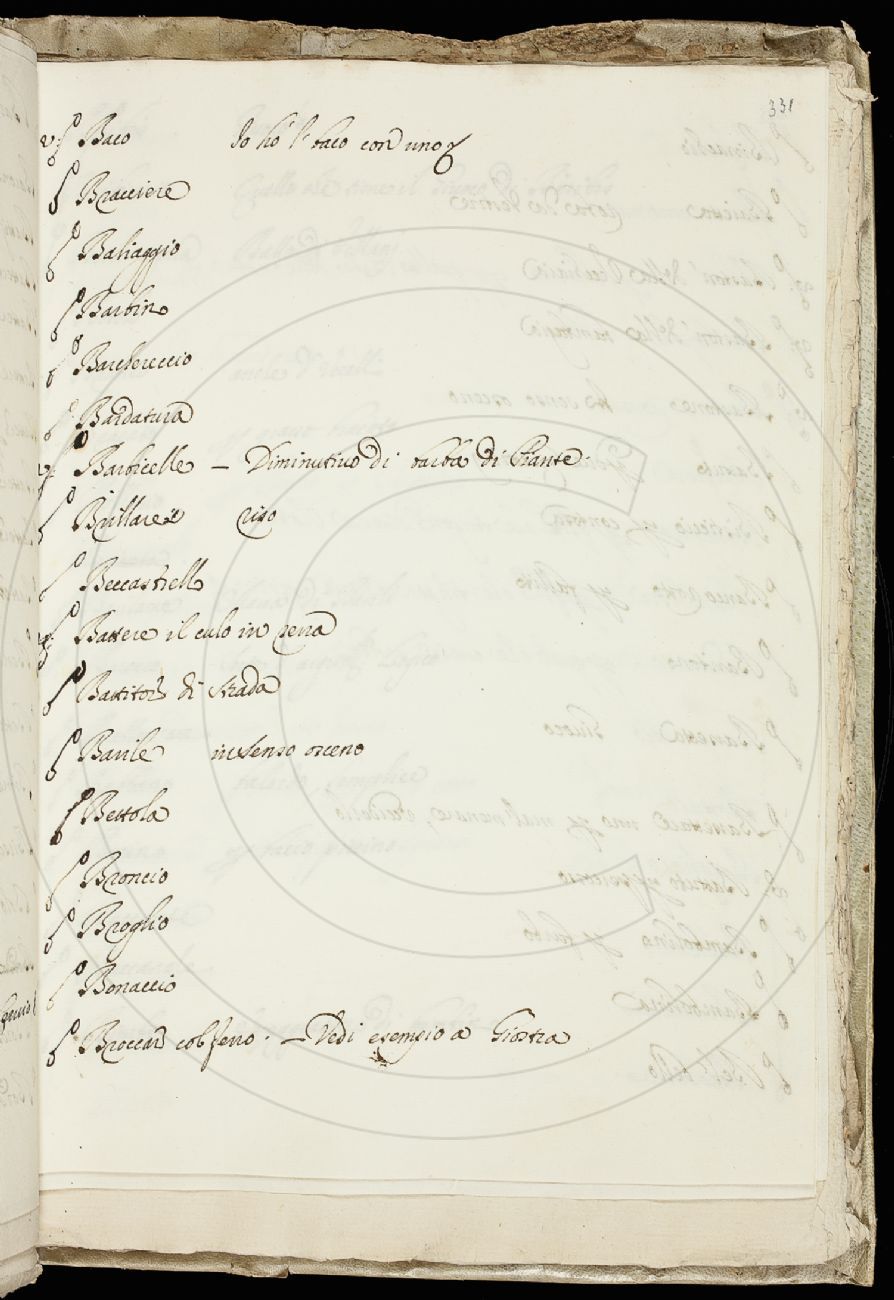 331
Baco Io hò l' baco con uno
Bracciere
Baliaggio
Barbino
Barchereccio
Bardatura
Barbicelle – Diminutivo di barba di Piante.
Brillare riso
Beccastrello
Battere il culo in terra
Battitor di strada
Barile in senso osceno
Bettola
Broncio
Broglio
Bonaccio
Broccar col ferro. – Vedi esempio a Giostra